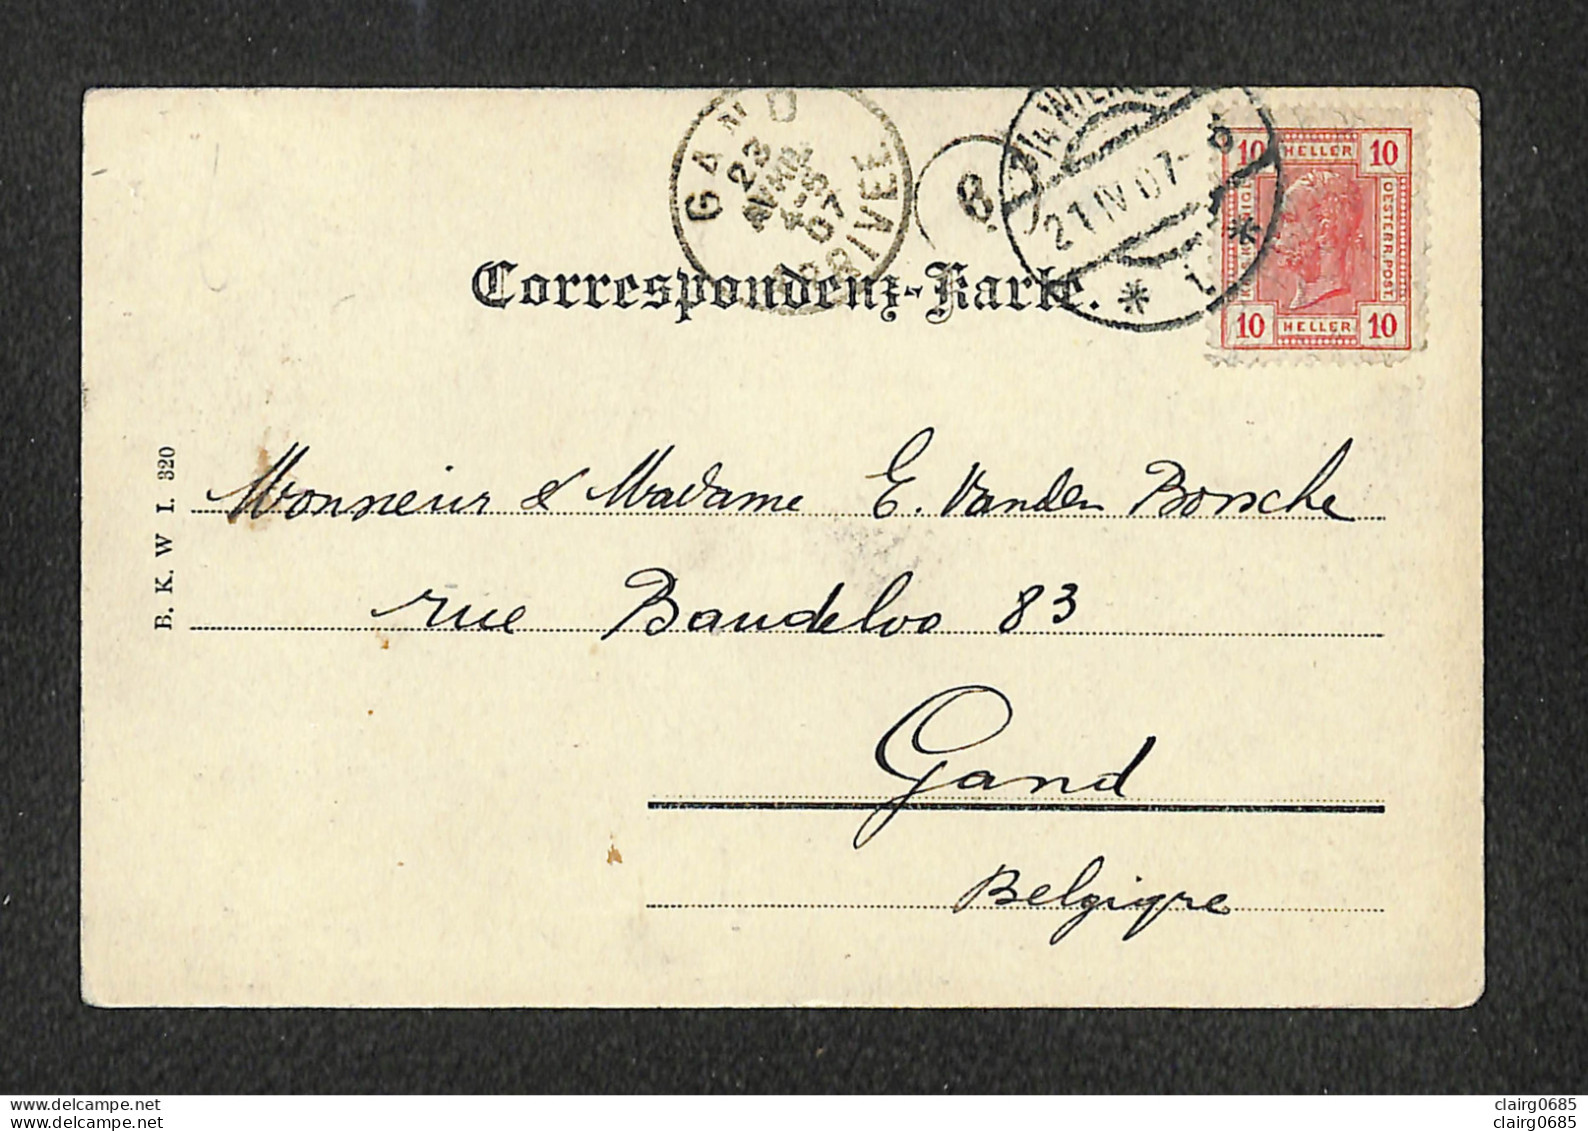 GAND
23
4-S
07
ARRIVEE
8
3/4 WIEN
21 IV 07-6
* 1 *
10 HELLER 10
OESTERR. POST.
10 HELLER 10
Correspondenz-Karte.
B. K. W I. 320
Monsieur & Madame E. Vanden Bossche
rue Baudeloo 83
Gand
Belgique
www.delcampe.net
clairg0685
www.delcampe.net
clairg0685